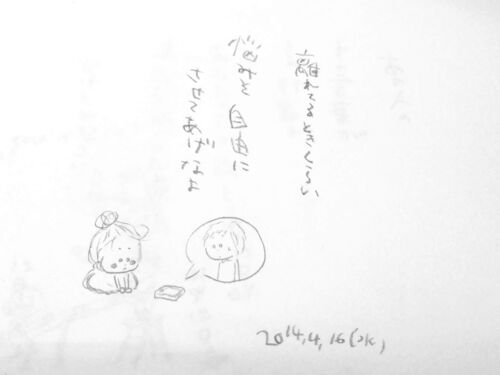 離れてるときくらい
悩みを自由に
させてあげなよ
2014,4,16(水)